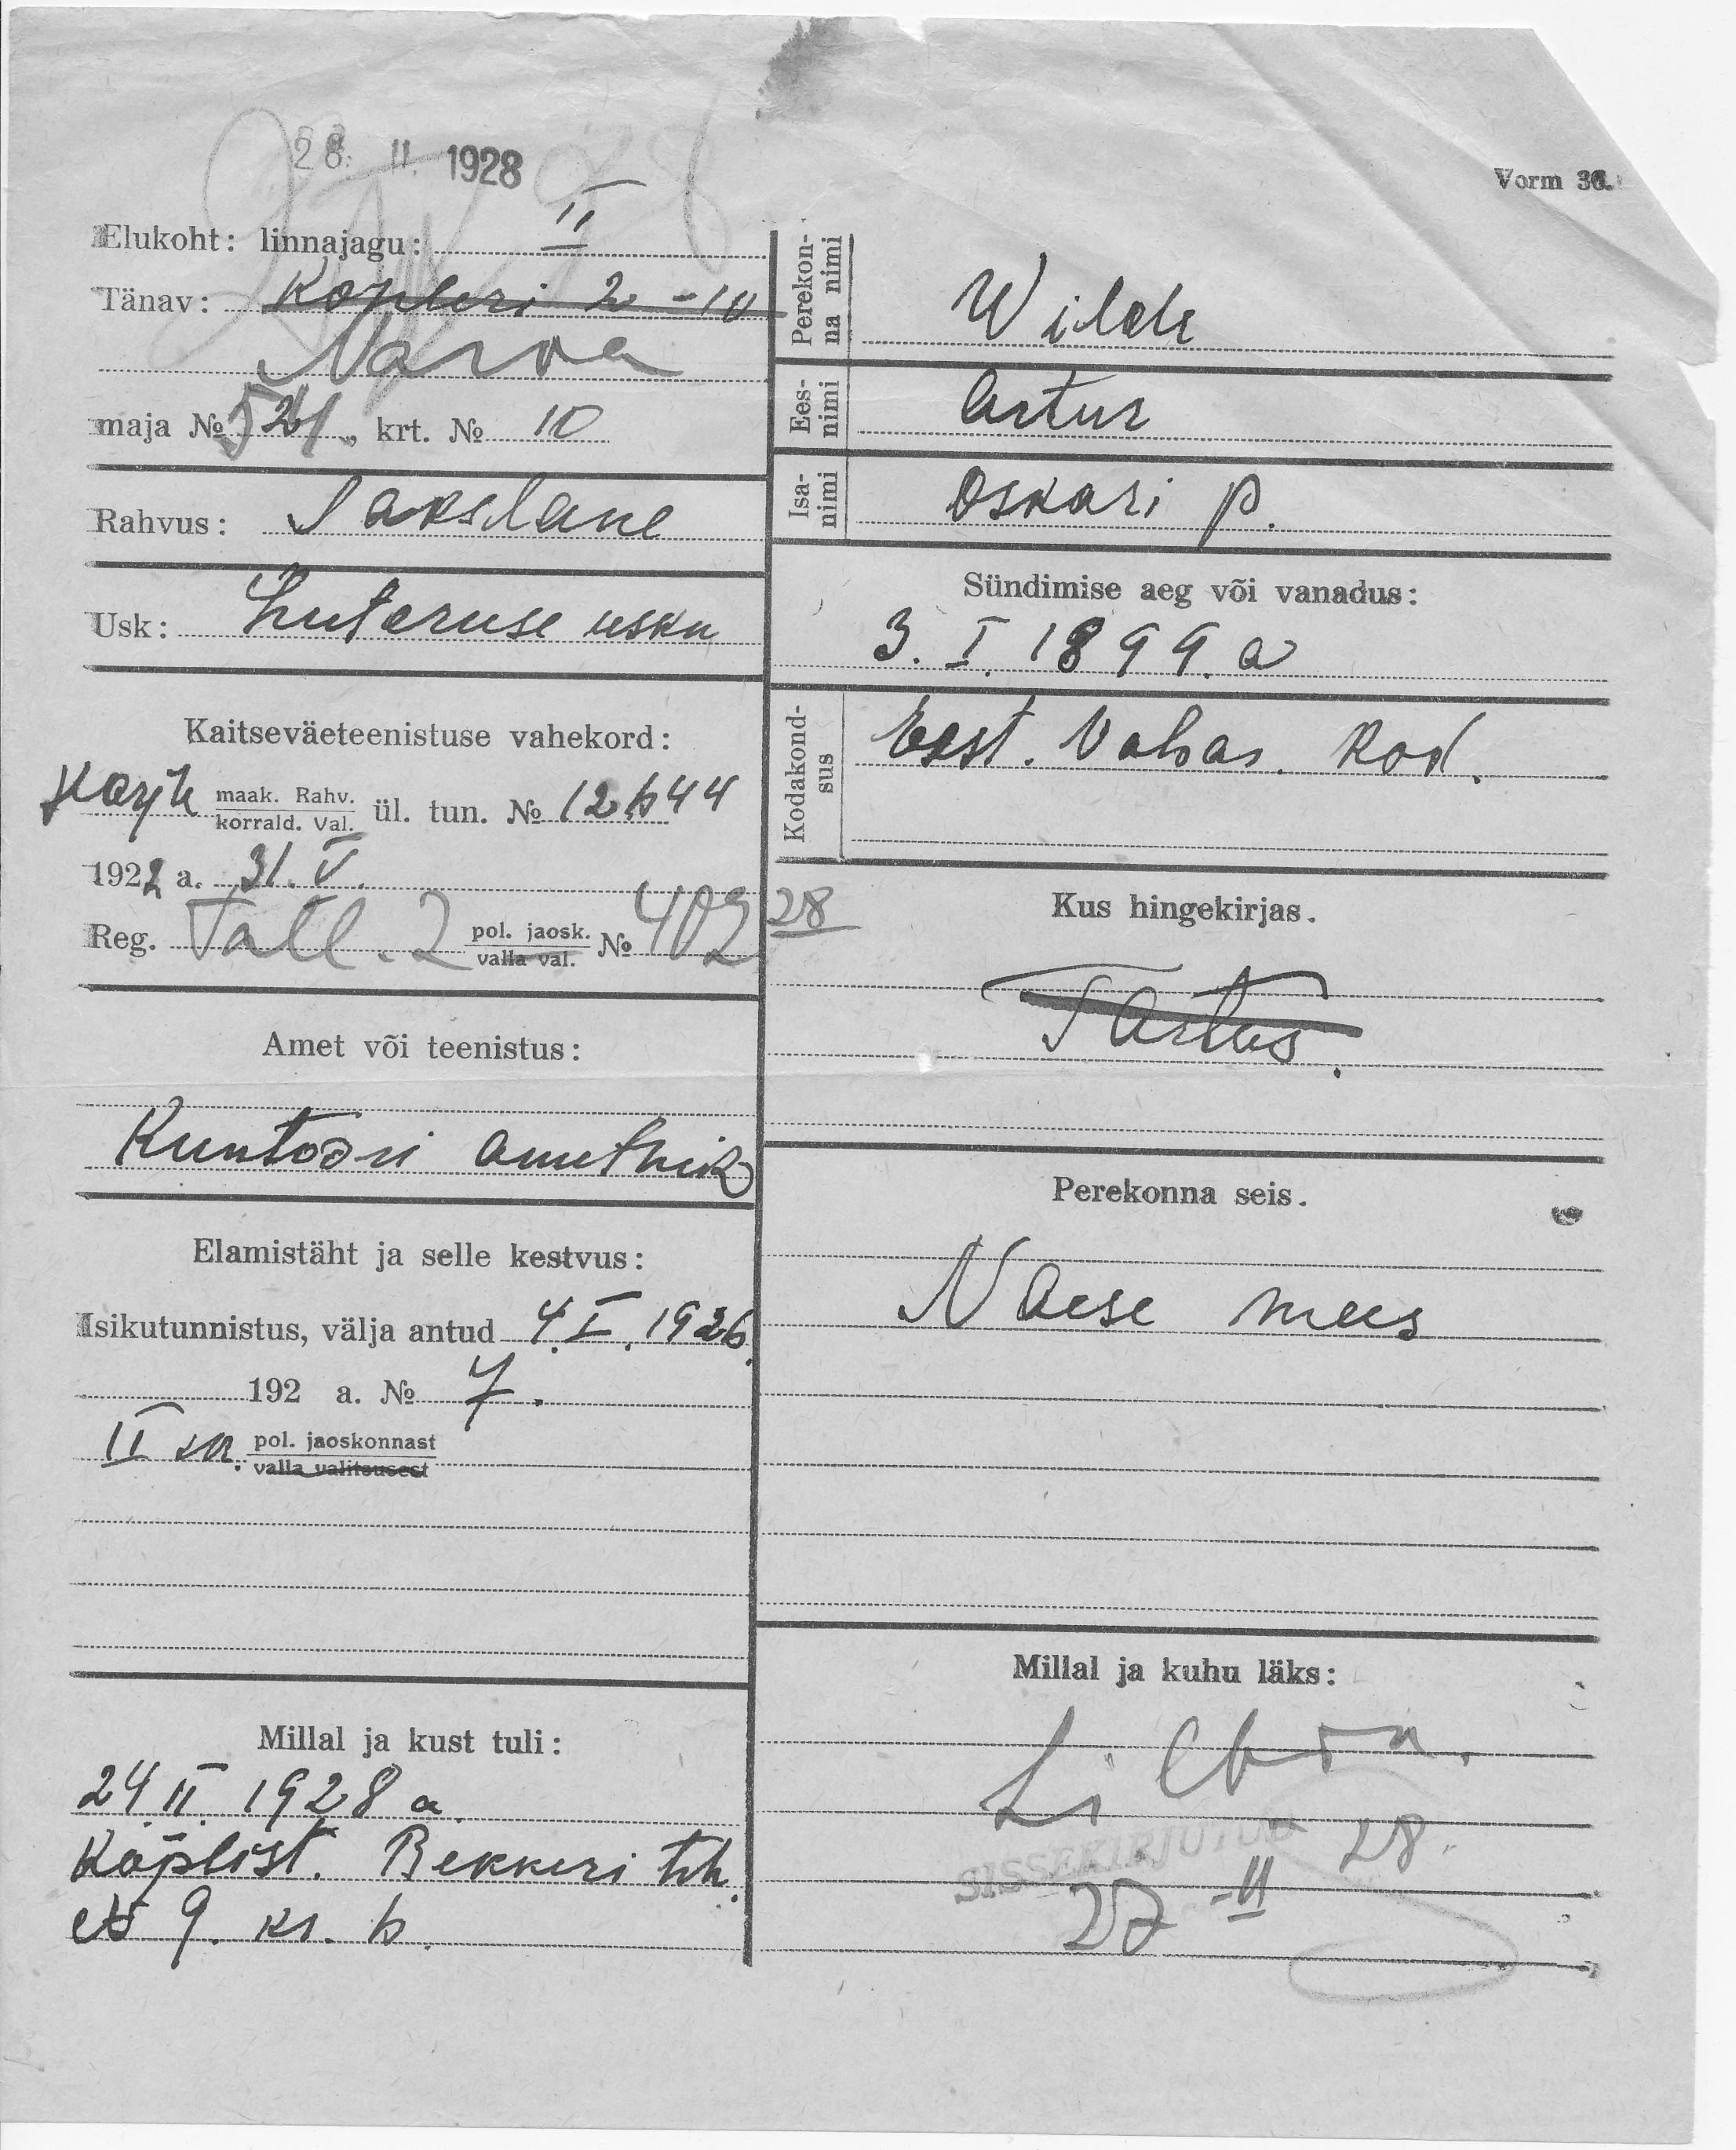 28. II. 1928
Vorm 36.
Elukoht: linnajagu: II
Tänav: Kopleri 2 - 10
Narva
maja № 52 krt. № 10
Rahvus: Sakslane
Usk: Luteruse usku
Kaitseväeteenistuse vahekord:
Harju maak. Rahv.
korrald. Val. ül. tun. № 12644
1922 a. 31. V.
Reg. Tall. 2 pol. jaosk.
valla val. № 402 28
Amet või teenistus:
Kuntoori ametnik
Elamistäht ja selle kestvus:
Isikutunnistus, välja antud 4. I. 1926.
192 a. № 7.
II pol. jaoskonnast
valla valitsusest
Millal ja kust tuli:
24 II 1928 a.
Koplist. Bekkeri teh.
№ 9. kr. 6.
Perekon-
na nimi
Wilde
Ees-
nimi
Artur
Isa-
nimi
Oskari p.
Sündimise aeg või vanadus:
3. I. 1899. a
Kodakond-
sus
Eest. Vabar. Kod.
Kus hingekirjas.
Tartus.
Perekonna seis.
Naese mees
Millal ja kuhu läks:
SISSEKIRJUTUD
28.
27 - II